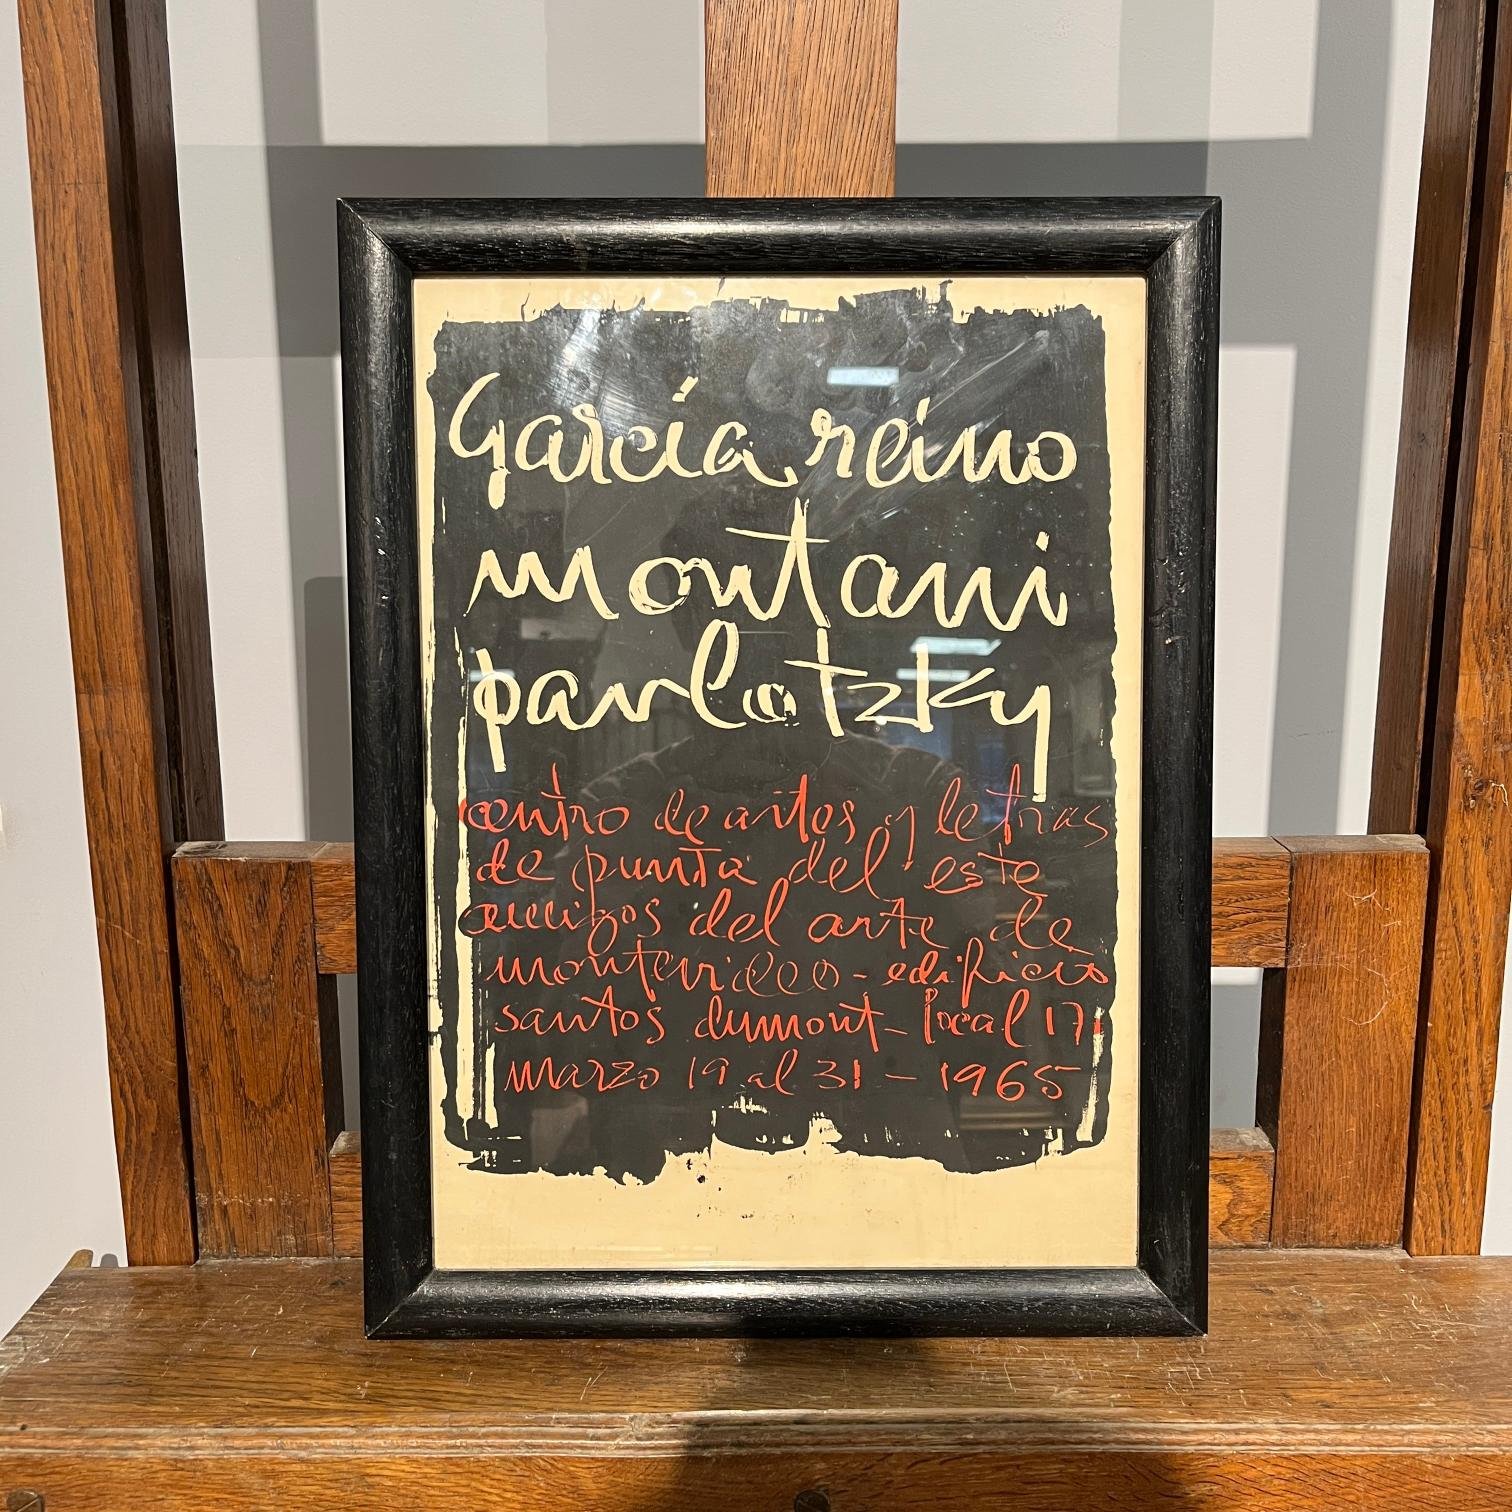 García reino
montani
pavlotzky
centro de artes y letras
de punta del este
amigos del arte de
montevideo - edificio
santos dumont - local 17
marzo 19 al 31 - 1965